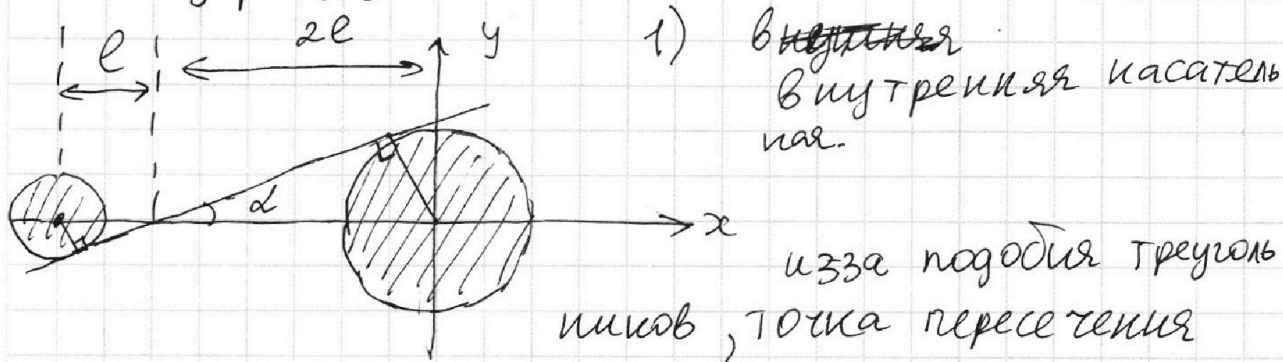 l 2l y 1) внутренняя
внутренняя касатель
ная.
α
x
изза подобия треуголь
ников, точка пересечения